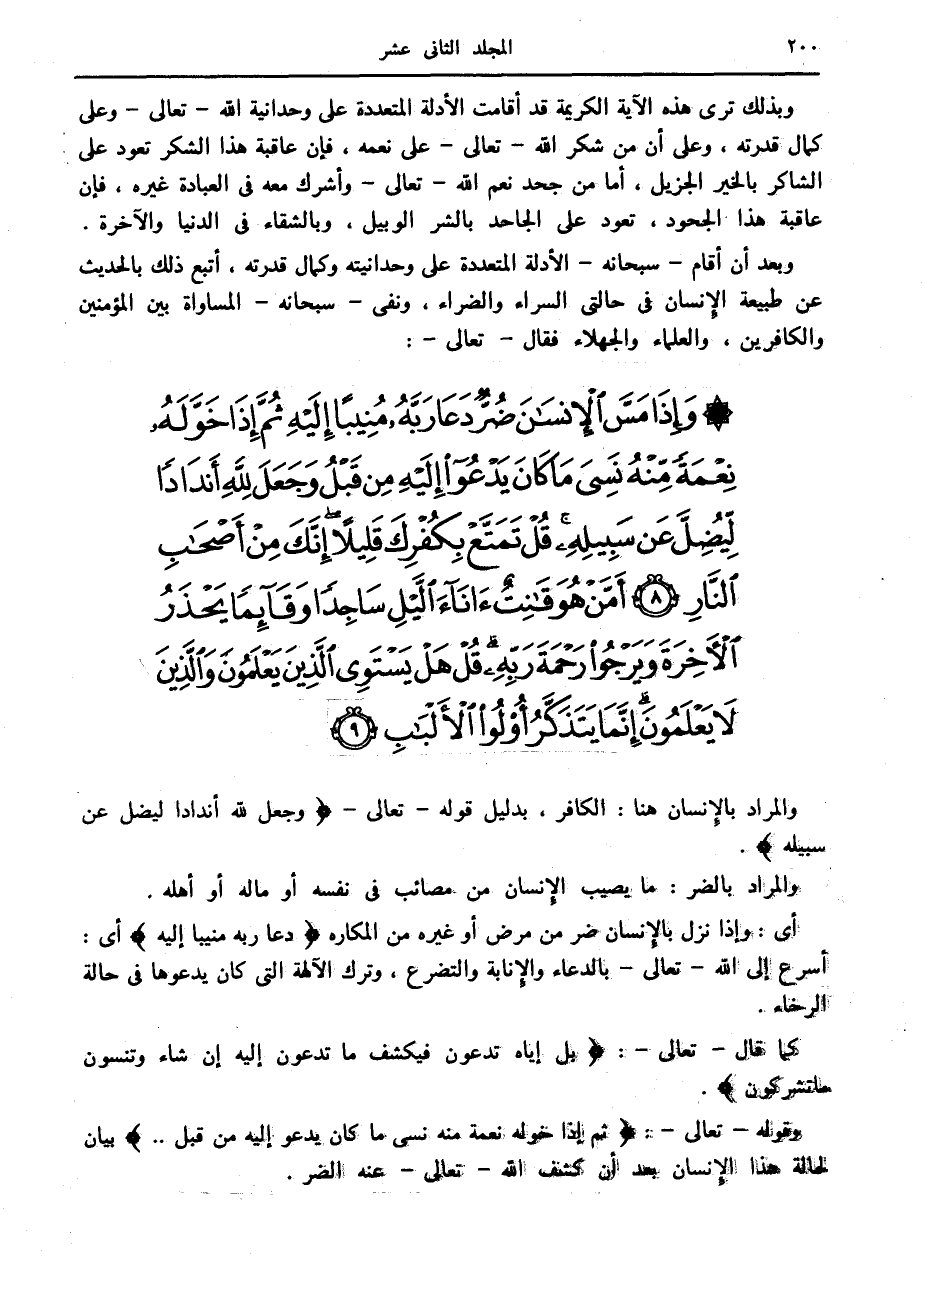 ٢٠٠
المجلد الثانى عشر
وبذلك ترى هذه الآية الكريمة قد أقامت الأدلة المتعددة على وحدانية الله – تعالى – وعلى
كمال قدرته ، وعلى أن من شكر الله – تعالى – على نعمه ، فإن عاقبة هذا الشكر تعود على
الشاكر بالخير الجزيل ، أما من جحد نعم الله – تعالى – وأشرك معه فى العبادة غيره ، فإن
عاقبة هذا الجحود ، تعود على الجاحد بالشر الوبيل ، وبالشقاء فى الدنيا والآخرة .
وبعد أن أقام – سبحانه – الأدلة المتعددة على وحدانيته وكمال قدرته ، أتبع ذلك بالحديث
عن طبيعة الإنسان فى حالتى السراء والضراء ، ونفى – سبحانه – المساواة بين المؤمنين
والكافرين ، والعلماء والجهلاء فقال – تعالى – :
۞ وَإِذَا مَسَّ ٱلْإِنسَٰنَ ضُرٌّ دَعَا رَبَّهُۥ مُنِيبًا إِلَيْهِ ثُمَّ إِذَا خَوَّلَهُۥ
نِعْمَةً مِّنْهُ نَسِىَ مَا كَانَ يَدْعُوٓا۟ إِلَيْهِ مِن قَبْلُ وَجَعَلَ لِلَّهِ أَندَادًا
لِّيُضِلَّ عَن سَبِيلِهِۦ ۚ قُلْ تَمَتَّعْ بِكُفْرِكَ قَلِيلًا ۖ إِنَّكَ مِنْ أَصْحَٰبِ
ٱلنَّارِ ۝٨ أَمَّنْ هُوَ قَٰنِتٌ ءَانَآءَ ٱلَّيْلِ سَاجِدًا وَقَآئِمًا يَحْذَرُ
ٱلْأَخِرَةَ وَيَرْجُوا۟ رَحْمَةَ رَبِّهِۦ ۗ قُلْ هَلْ يَسْتَوِى ٱلَّذِينَ يَعْلَمُونَ وَٱلَّذِينَ
لَا يَعْلَمُونَ ۗ إِنَّمَا يَتَذَكَّرُ أُو۟لُوا۟ ٱلْأَلْبَٰبِ ۝٩
والمراد بالإنسان هنا : الكافر ، بدليل قوله – تعالى – ﴿ وجعل لله أندادا ليضل عن
سبيله ﴾ .
والمراد بالضر : ما يصيب الإنسان من مصائب فى نفسه أو ماله أو أهله .
أى : وإذا نزل بالإنسان ضر من مرض أو غيره من المكاره ﴿ دعا ربه منيبا إليه ﴾ أى :
أسرع إلى الله – تعالى – بالدعاء والإنابة والتضرع ، وترك الآلهة التى كان يدعوها فى حالة
الرخاء .
كما قال – تعالى – : ﴿ بل إياه تدعون فيكشف ما تدعون إليه إن شاء وتنسون
ماتشركون ﴾ .
وقوله – تعالى – : ﴿ ثم إذا خوله نعمة منه نسى ما كان يدعو إليه من قبل .. ﴾ بيان
لحالة هذا الإنسان بعد أن كشف الله – تعالى – عنه الضر .